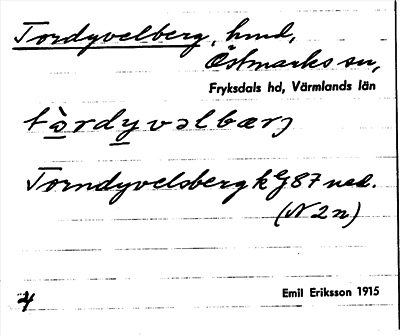 Tordyvelberg, hmd,
Östmarks sn,
Fryksdals hd, Värmlands län
tòrdyvəlbærj
Torndyvelsberg k G 87 ned.
(N 2 n)
4
Emil Eriksson 1915